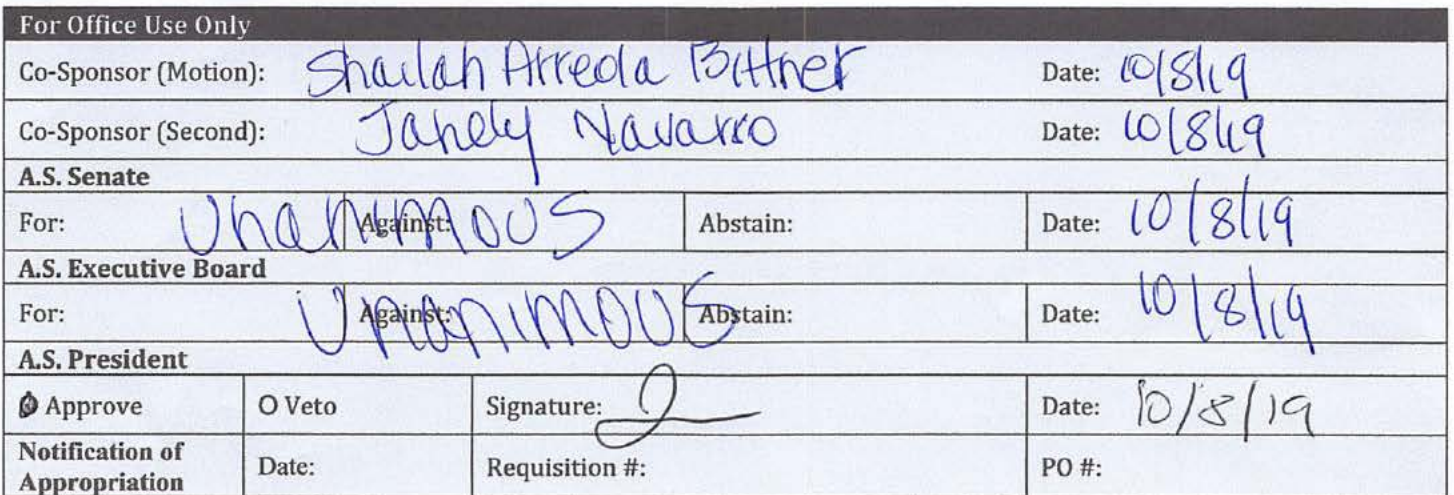 For Office Use Only
Co-Sponsor (Motion): Shailah Arreola Bittner Date: 10/8/19
Co-Sponsor (Second): Janely Navarro Date: 10/8/19
A.S. Senate
For: Unanimous Against: Abstain: Date: 10/8/19
A.S. Executive Board
For: Unanimous Against: Abstain: Date: 10/8/19
A.S. President
O Approve O Veto Signature: Date: 10/8/19
Notification of
Appropriation Date: Requisition #: PO #: